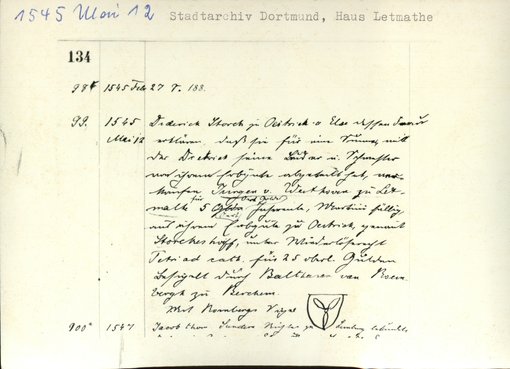 1545 Mai 12 Stadtarchiv Dortmund, Haus Letmathe
134
98f 1545 Feb 27 V. 188.
99. 1545 Diderick Storck zu Oestrick u Else dessen Frau
Mai 12 erklären, daß sie für eine Summe, mit
der Dietrich seine Brüder u. Schwester
von ihrem Erbgute abgeteilt hat, ver-
kaufen Jurgen v. Werthoven zu Let-
mathe für 5 Jahrrente, Martini fällig
aus ihrem Erbgute zu Oestrick, genannt
Storckeshoff, unter Wiederlöserecht
Petri ad cath. für 25 oberl. Gulden
Besiegelt durch Balthasar von Rom-
bergh zu Berchem.
Mit Rombergs Siegel
100a 1547 Jacob thor